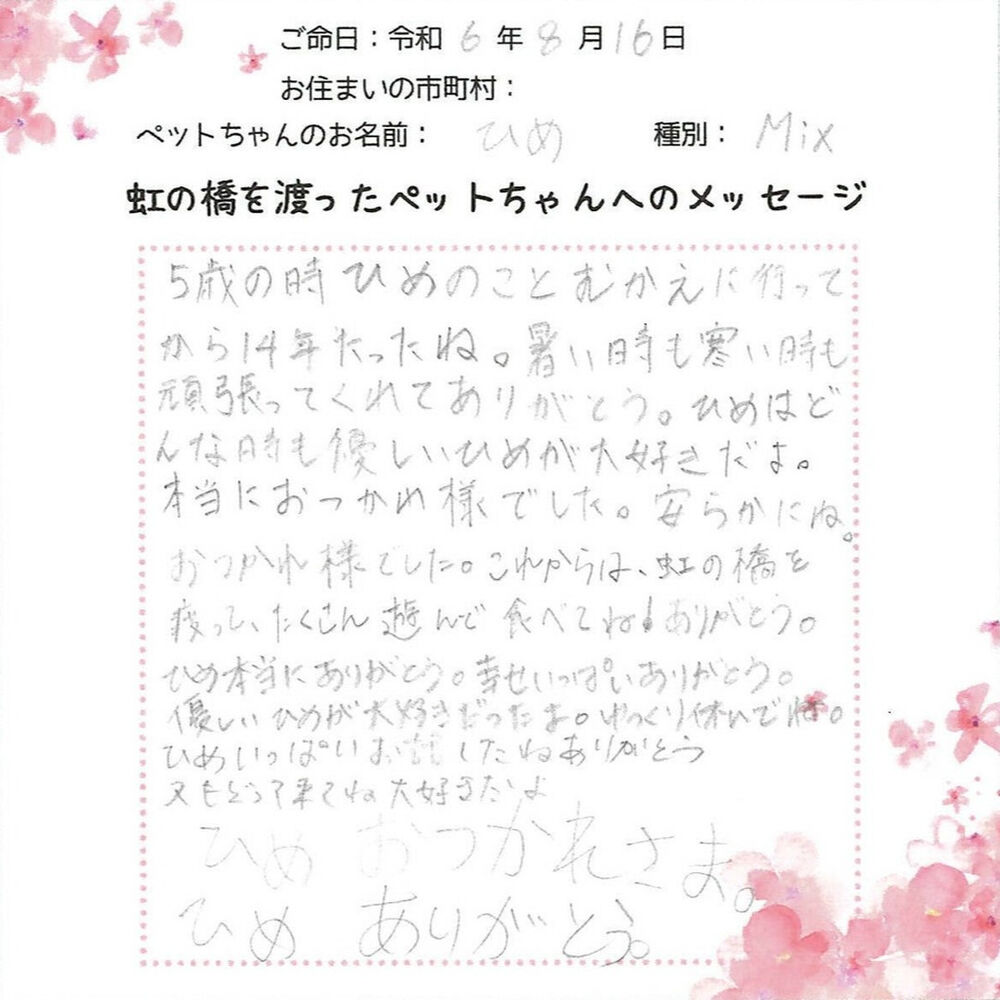 ご命日：令和 6 年 8 月 16 日
お住まいの市町村：
ペットちゃんのお名前： ひめ 種別： Mix
虹の橋を渡ったペットちゃんへのメッセージ
5歳の時ひめのことむかえに行って
から14年たったね。暑い時も寒い時も
頑張ってくれてありがとう。ひめはど
んな時も優しいひめが大好きだよ。
本当におつかれ様でした。安らかにね。
おつかれ様でした。これからは、虹の橋を
って、たくさん遊んで食べてね！ありがとう。
ひめ本当にありがとう。幸せいっぱいありがとう。
優しいひめが大好きだったよ。ゆっくり休んでね。
ひめいっぱいお話したねありがとう
又もどって来てね大好きだよ
ひめ おつかれさま。
ひめ ありがとう。